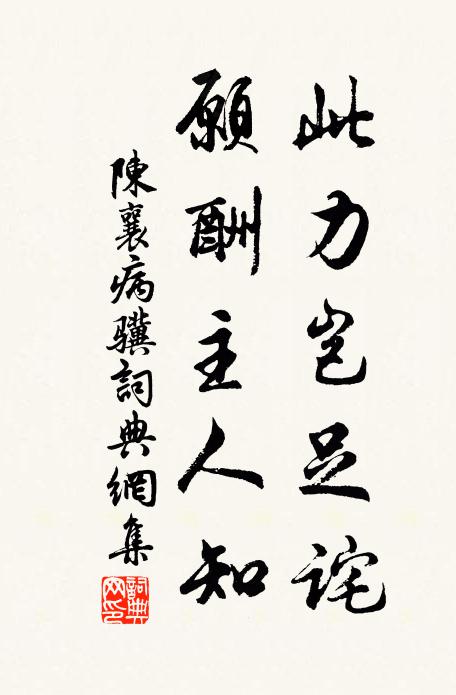 此力岂足詫
願酬主人知
陳襄病骥詞典網集
詞典网印